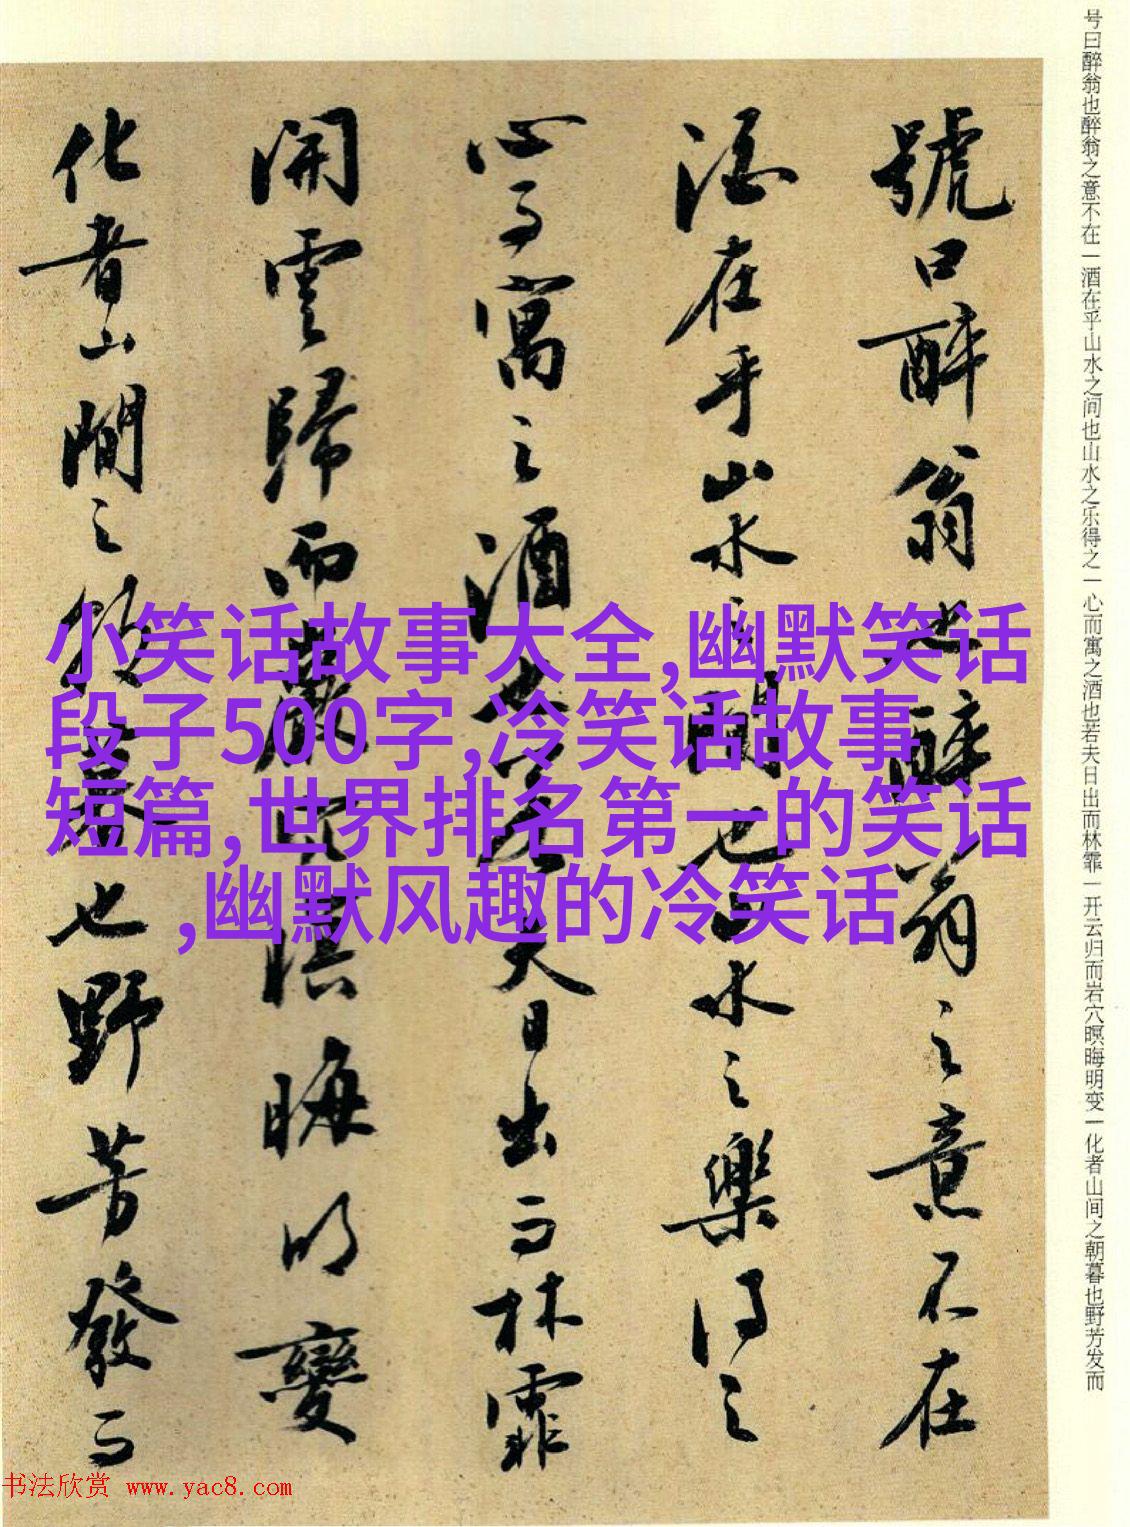 号曰醉翁也醉翁之意不在一酒在乎山水之间也山水之乐得之一心而寓之酒也若夫日出而林霏一开云归而岩穴暝晦明变一化者山间之朝暮也野芳发而
號曰醉翁也醉翁之意不在
酒在乎山水之間也山水之樂得之
心而寓之酒也若夫日出而林霏
開雲歸而巖穴暝晦明變
化者山間之朝暮也野芳發而
小笑话故事大全,幽默笑话
段子500字,冷笑话故事
短篇,世界排名第一的笑话
,幽默风趣的冷笑话
书法欣赏 www.yac8.com